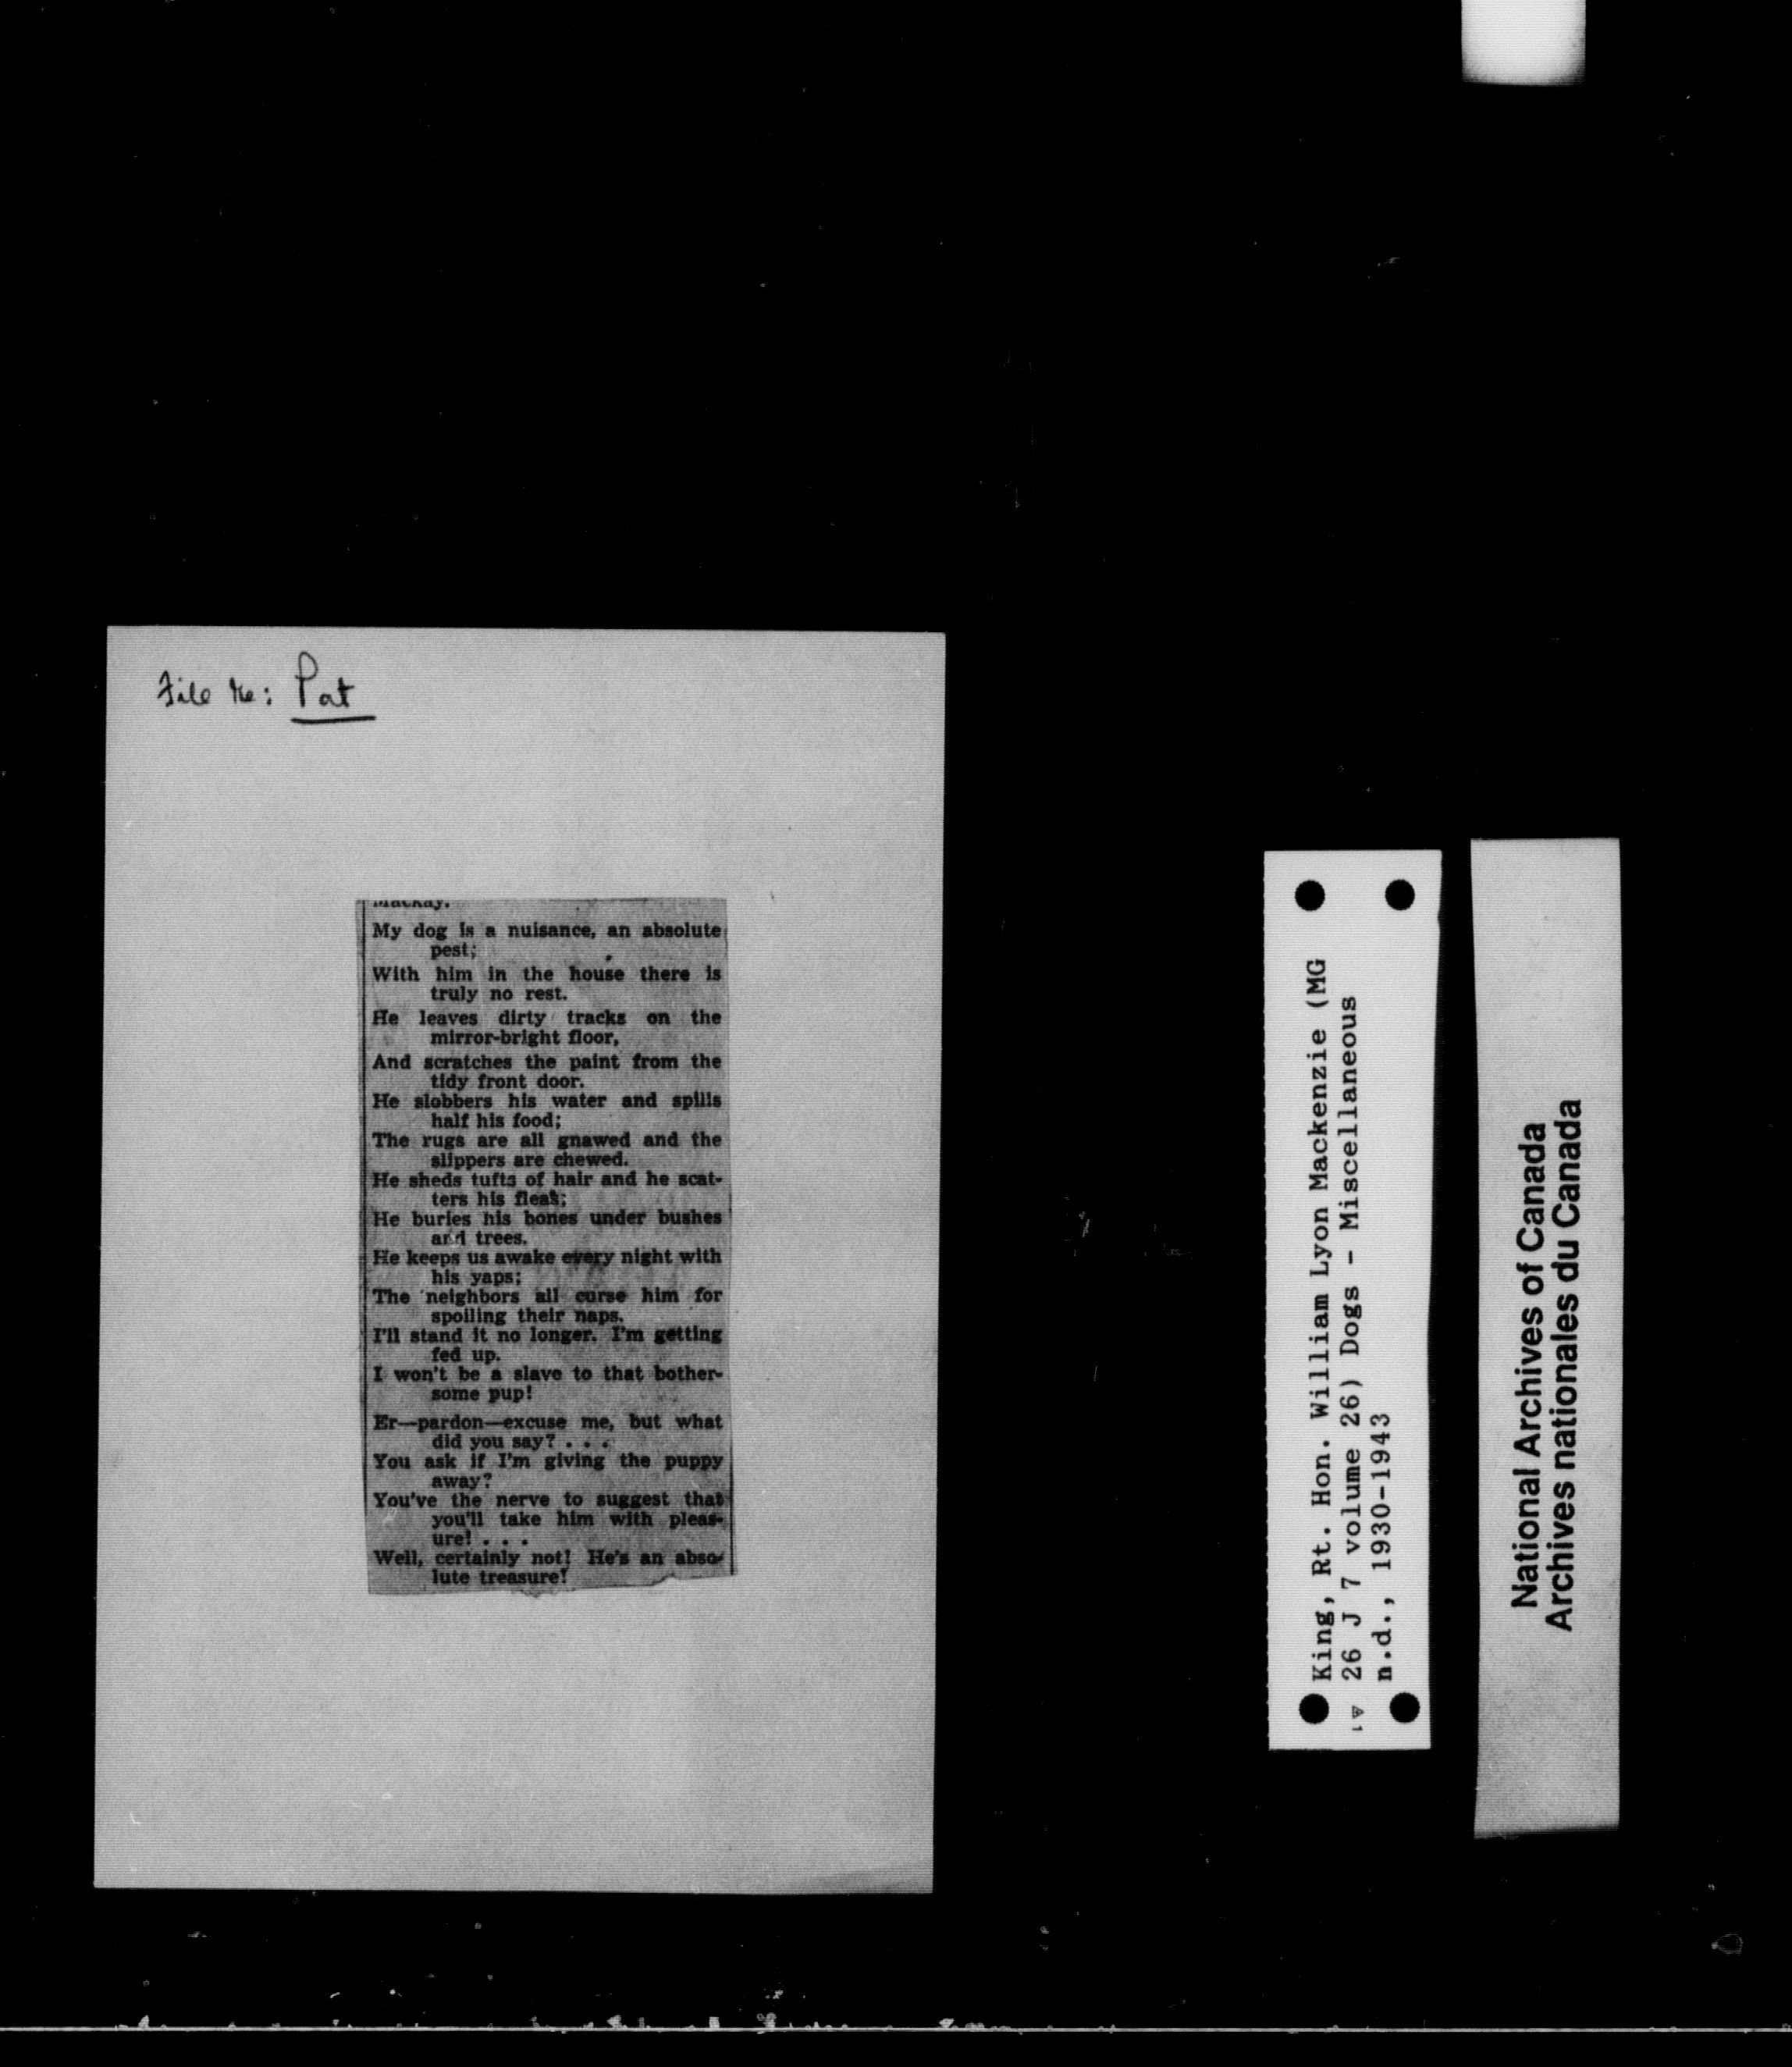 File Re: Pat
Mackay.
My dog is a nuisance, an absolute
pest;
With him in the house there is
truly no rest.
He leaves dirty tracks on the
mirror-bright floor,
And scratches the paint from the
tidy front door.
He slobbers his water and spills
half his food;
The rugs are all gnawed and the
slippers are chewed.
He sheds tufts of hair and he scat-
ters his fleas;
He buries his bones under bushes
and trees.
He keeps us awake every night with
his yaps;
The neighbors all curse him for
spoiling their naps.
I'll stand it no longer. I'm getting
fed up.
I won't be a slave to that bother-
some pup!
Er—pardon—excuse me, but what
did you say? . . .
You ask if I'm giving the puppy
away?
You've the nerve to suggest that
you'll take him with pleas-
ure! . . .
Well, certainly not! He's an abso-
lute treasure!
King, Rt. Hon. William Lyon Mackenzie (MG
26 J 7 volume 26) Dogs - Miscellaneous
n.d., 1930-1943
National Archives of Canada
Archives nationales du Canada